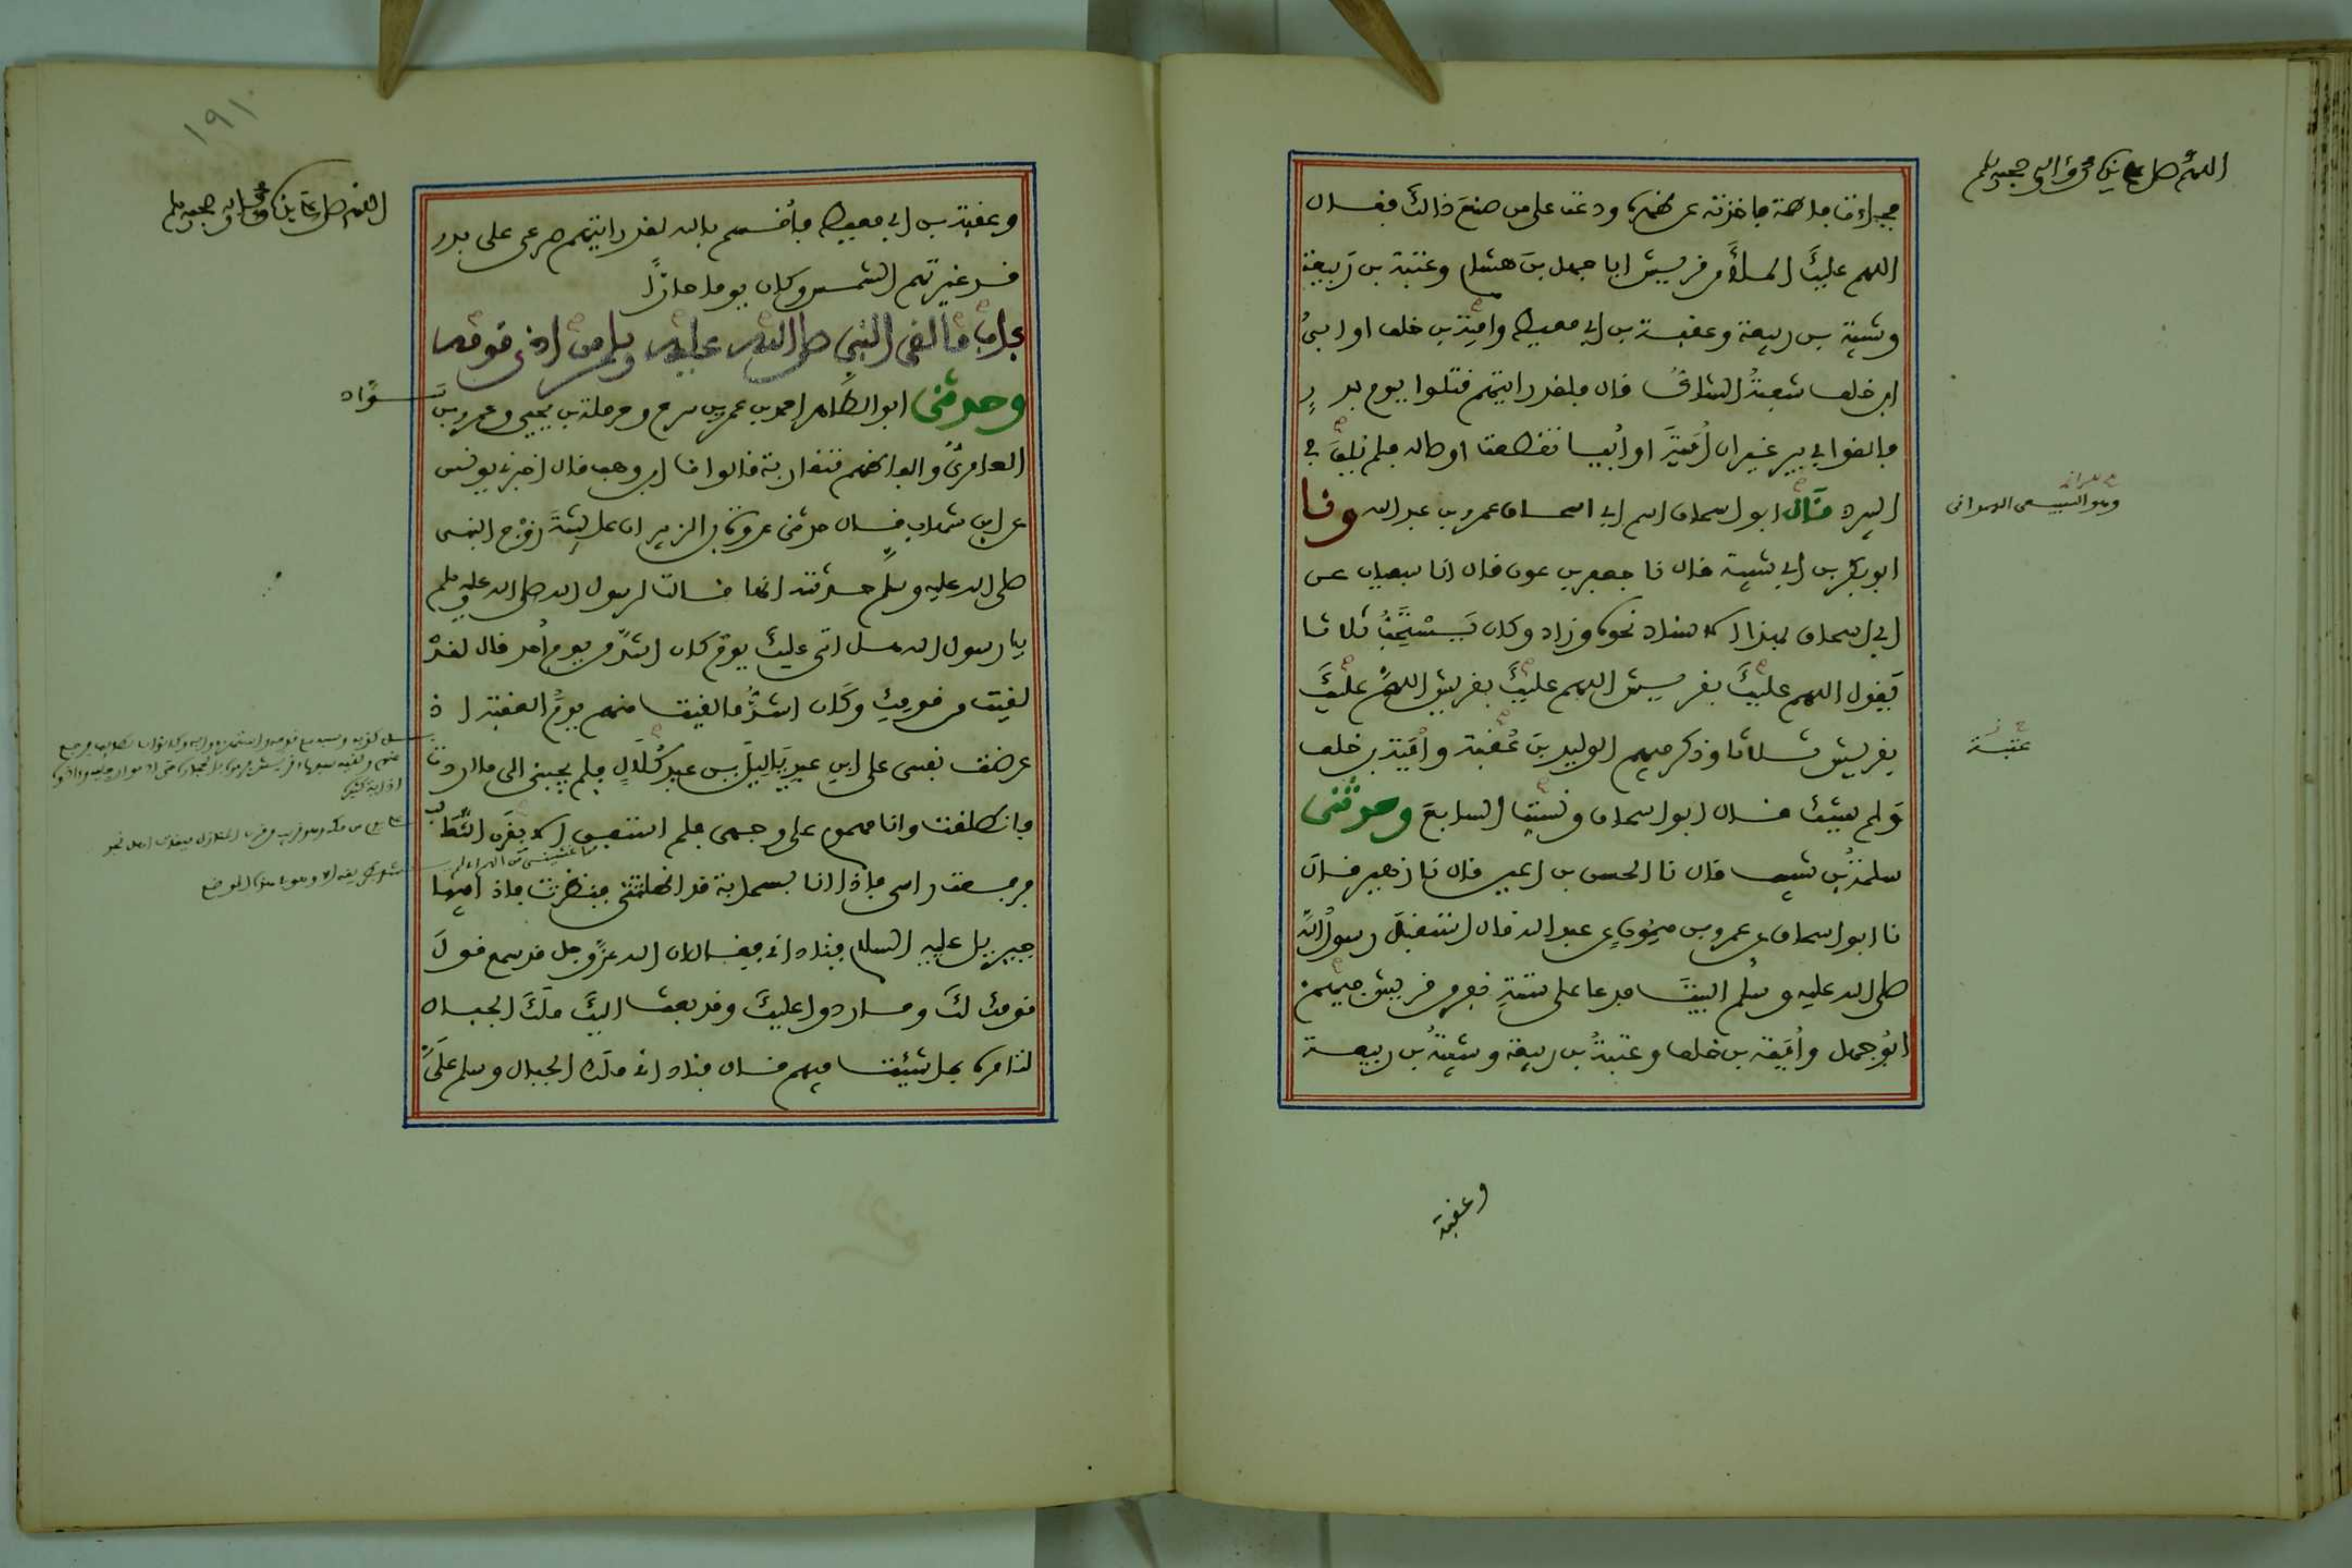 اللهم صل على سيدنا محمد وآله وصحبه وسلم
فجاءت فاطمة فاخذته عن ظهره ودعت على من صنع ذالك فقال
اللهم عليك الملأ من قريش ابا جهل بن هشام وعتبة بن ربيعة
وشيبة بن ربيعة وعقبة بن ابي معيط وامية بن خلف او ابي
ابن خلف شعبة الشاك قال فلقد رايتهم قتلوا يوم بدر
فالقوا في بير غير ان أمية او أبيا تقطعت اوصاله فلم يلق في
البير قال ابو اسحاق اسم ابي اسحاق عمرو بن عبد الله ونا
وهو السبيعي الهمداني
ابو بكر بن ابي شيبة قال نا جعفر بن عون قال انا سفيان عن
ابي اسحاق بهذا الاسناد نحوه وزاد وكان يستحب ثلاثا
يقول اللهم عليك بقريش اللهم عليك بقريش اللهم عليك
بقريش ثلاثا وذكر فيهم الوليد بن عقبة وأمية بن خلف
عتبة
ولم يشك قال ابو اسحاق ونسيت السابع وحدثني
سلمة بن شبيب قال نا الحسن بن اعين قال نا زهير قال
نا ابو اسحاق عن عمرو بن ميمون عن عبد الله قال استقبل رسول الله
صلى الله عليه وسلم البيت فدعا على ستة نفر من قريش فيهم
ابو جهل وأمية بن خلف وعتبة بن ربيعة وشيبة بن ربيعة
وعقبة
١٩١
اللهم صل على سيدنا محمد وآله وصحبه وسلم
وعقبة بن ابي معيط فأقسم بالله لقد رايتهم صرعى على بدر
قد غيرتهم الشمس وكان يوما حارا
باب ما لقي النبي صلى الله عليه وسلم من اذى قومه
وحدثني ابو الطاهر احمد بن عمرو بن سرح وحرملة بن يحيى وعمرو بن
سواد
العامري والفاظهم متقاربة قالوا نا ابن وهب قال اخبرني يونس
عن ابن شهاب قال حدثني عروة بن الزبير ان عايشة زوج النبي
صلى الله عليه وسلم حدثته انها قالت لرسول الله صلى الله عليه وسلم
يا رسول الله هل اتى عليك يوم كان اشد من يوم أحد قال لقد
لقيت من قومك وكان اشد ما لقيت منهم يوم العقبة اذ
عرضت نفسي على ابن عبد ياليل بن عبد كلال فلم يجبني الى ما اردت
فانطلقت وانا مهموم على وجهي فلم استفق الا بقرن الثعالب
فرفعت راسي فاذا انا بسحابة قد اظلتني فنظرت فاذا فيها
جبريل عليه السلام فناداني فقال ان الله عز وجل قد سمع قول
قومك لك وما ردوا عليك وقد بعث اليك ملك الجبال
لتامره بما شئت فيهم قال فناداني ملك الجبال وسلم علي